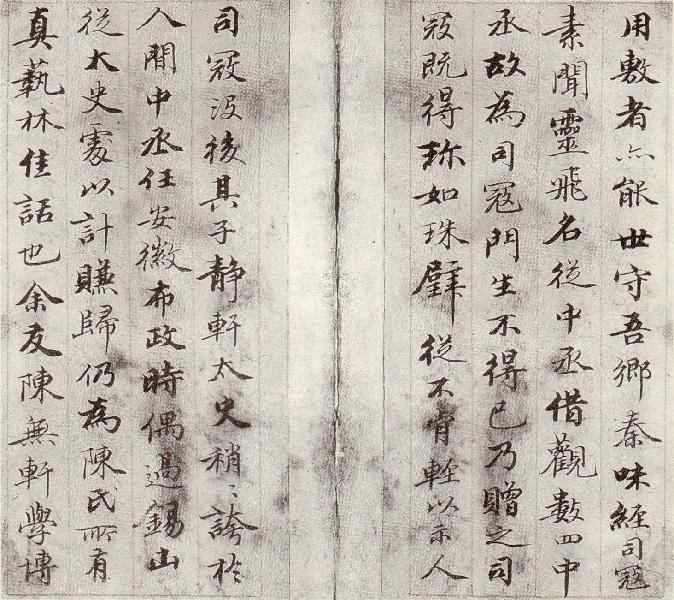 用敷者亦能世守吾鄉秦味經司寇
素聞靈飛名從中丞借觀數四中
丞故為司寇門生不得已乃贈之司
寇既得珎如珠璧從不肯輕以示人
司寇沒後其子靜軒太史稍〻誇於
人間中丞任安徽布政時偶過錫山
從太史處以計賺歸仍為陳氏所有
真藝林佳話也余友陳無軒學博